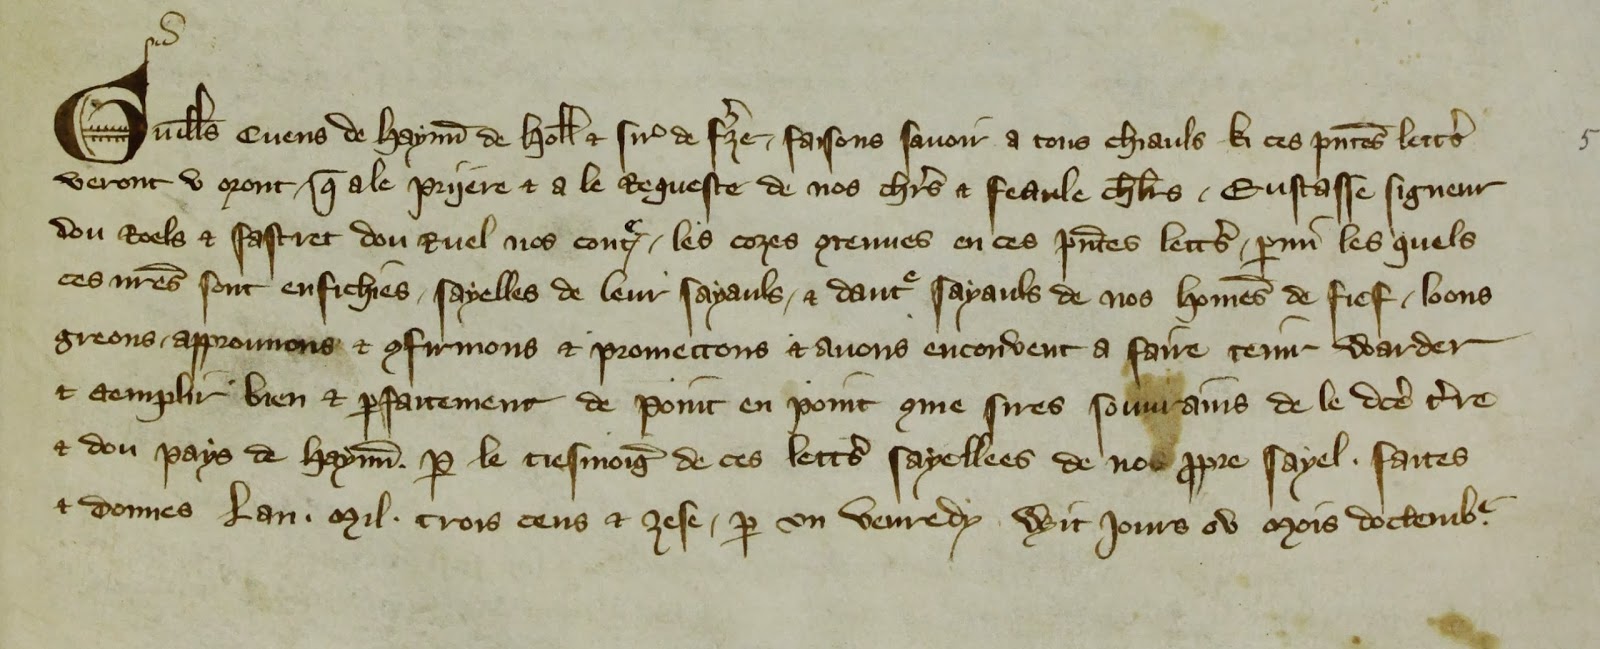 Guill's Cuens de Haynn' de Holl' & sir' de Frize, faisons savoir a tous chiauls ki ces pntes lettr's
veront u oront, q ale prijere & a le Requeste de nos chrs & feaule chlrs, Eustasse signeur
dou Roels & fastret dou Ruel nos les cozes 9tenues en ces pntes lettr's, pmi les quels
ces nres sont enfichies, sayelles de leur sayauls, & daut' sayauls de nos homes de fief, loons
greons, approuuons & 9firmons & promettons & auons enconvent a faire tenir warder
& aemplir bien & pfaitement de point en point 9me sires souurains de le dce t're
& dou pays de haynn'. P le tiesmoig de ces lettr's sayellees de no ppre sayel. faites
& donnes Lan. Mil. trois cens & zese, p un venredy wit jours ou mois doctemb'.
5